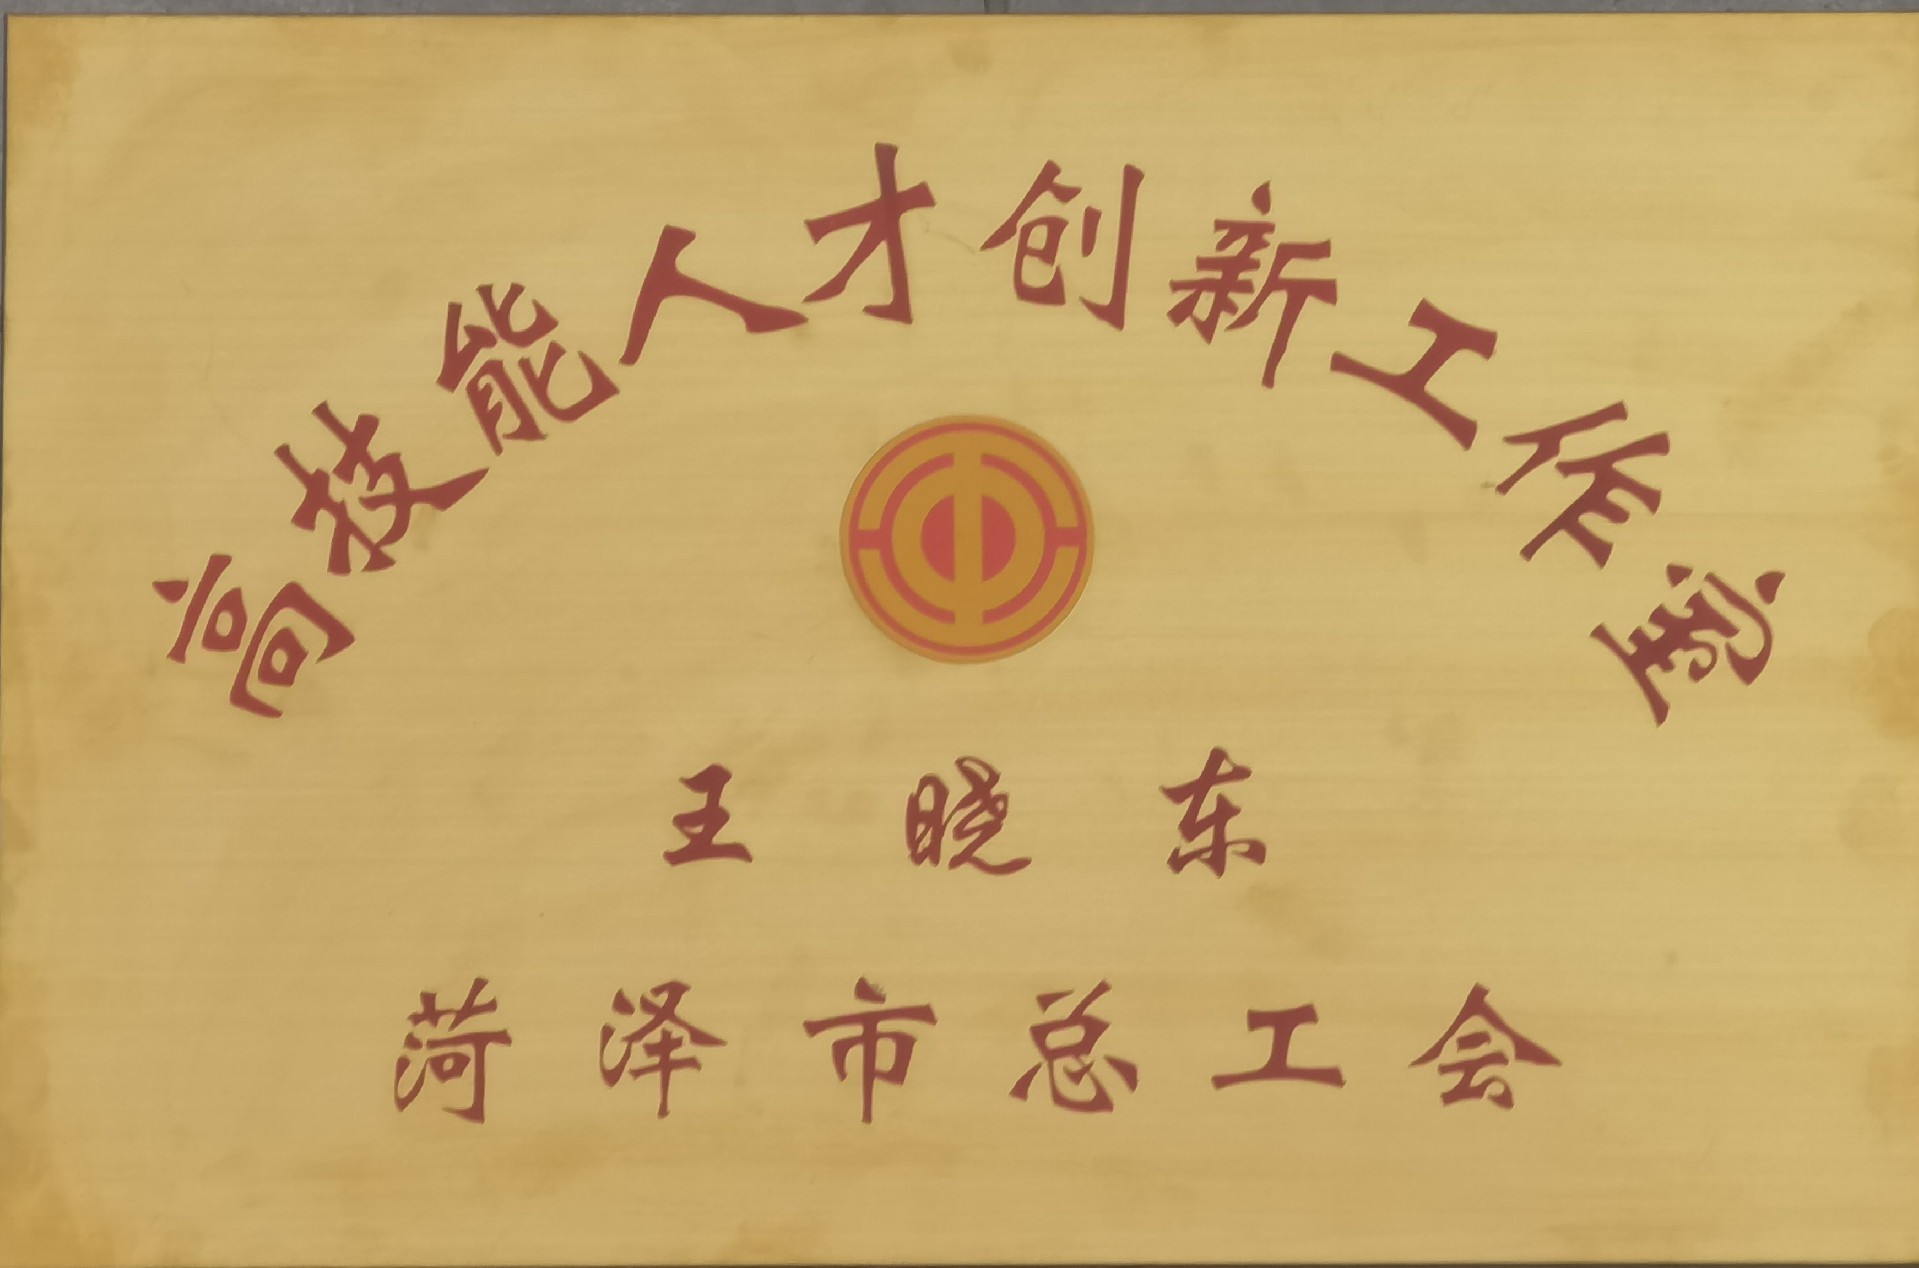 高技能人才创新工作室
王晓东
菏泽市总工会